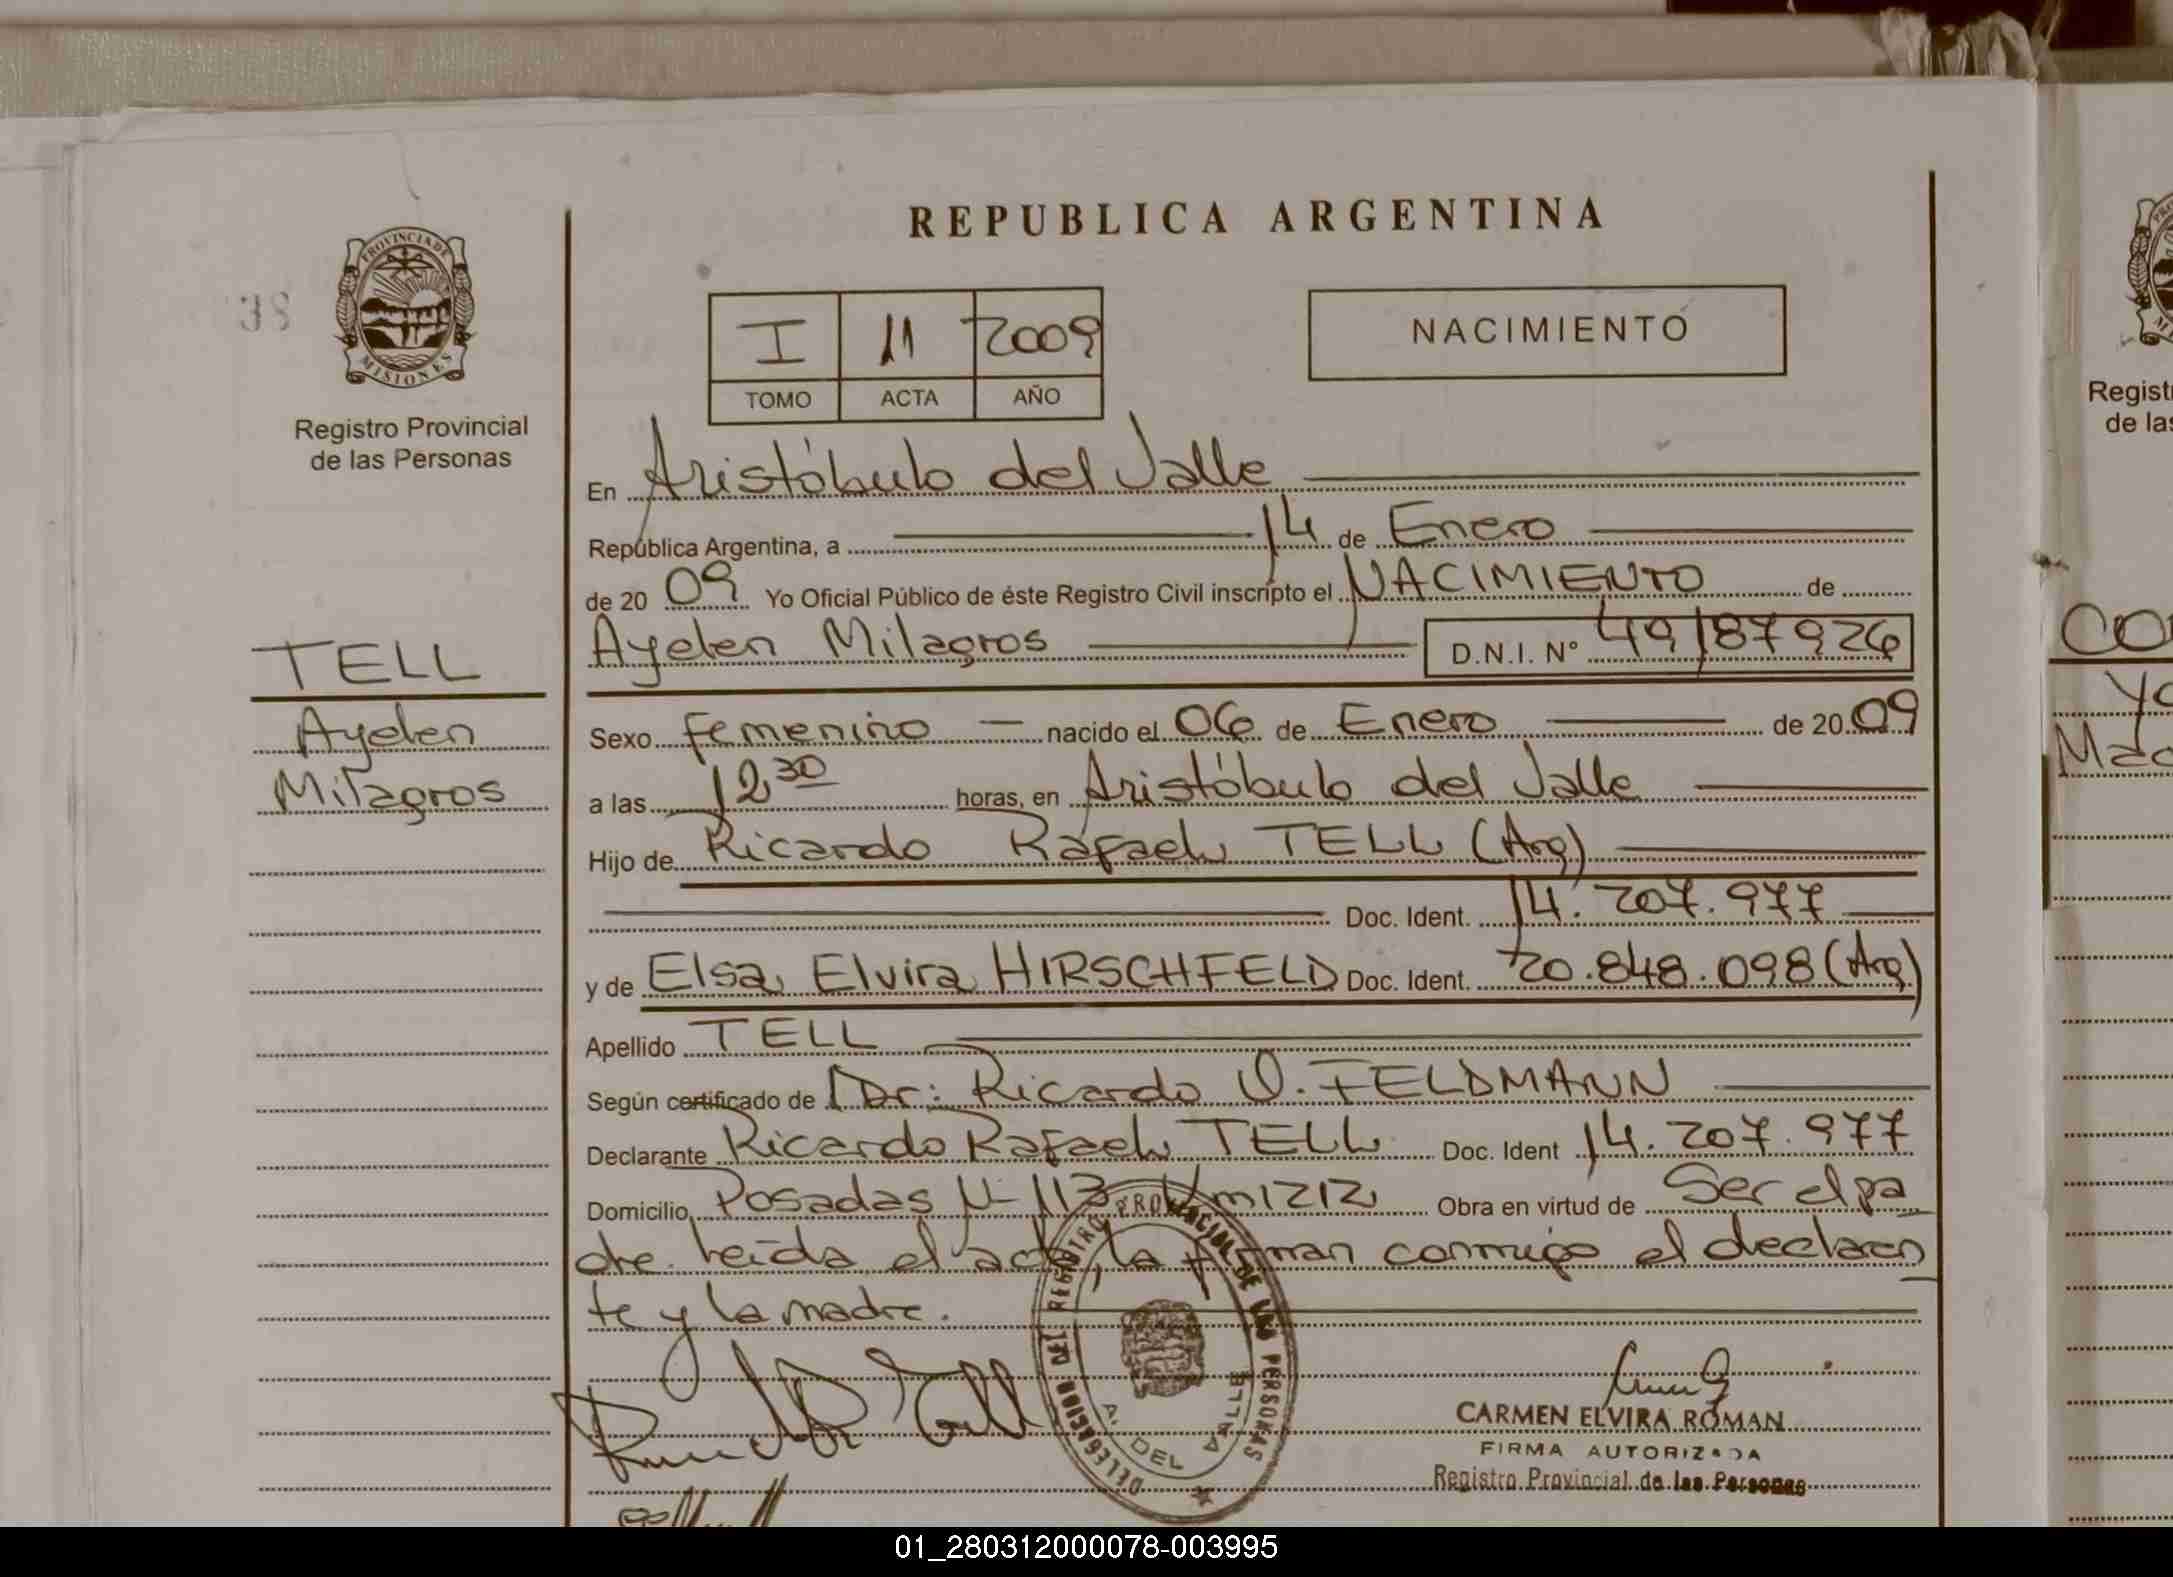 REPUBLICA ARGENTINA
PROVINCIA DE
MISIONES
38
Registro Provincial
de las Personas
I 11 2009
TOMO ACTA AÑO
NACIMIENTO
En Aristóbulo del Valle
República Argentina, a 14 de Enero
de 20 09 Yo Oficial Público de éste Registro Civil inscripto el NACIMIENTO de
Ayelen Milagros D.N.I. Nº 49187926
TELL
Ayelen
Milagros
Sexo femenino nacido el 06 de Enero de 20 09
a las 12 30 horas, en Aristóbulo del Valle
Hijo de Ricardo Rafael TELL (Arg)
Doc. Ident. 14.207.977
y de Elsa Elvira HIRSCHFELD Doc. Ident. 20.848.098 (Arg)
Apellido TELL
Según certificado de Dr: Ricardo O. FELDMANN
Declarante Ricardo Rafael TELL Doc. Ident 14.207.977
Domicilio Posadas Km 1212 Obra en virtud de Ser el pa
dre. Leída el acta, la firman conmigo el declaran
te y la madre.
DELEGACION DEL REGISTRO PROVINCIAL DE LAS PERSONAS
A. DEL VALLE
CARMEN ELVIRA ROMAN
FIRMA AUTORIZADA
Registro Provincial de las Personas
Regist
de las
CO
Ya
Mac
01_280312000078-003995